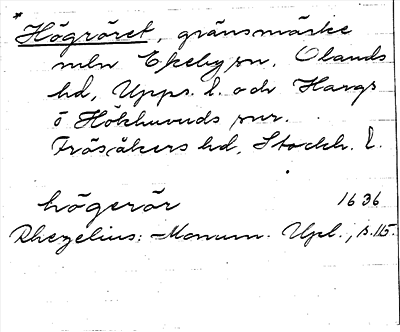 *
Högröret, gränsmärke
mln Ekeby sn, Olands
hd, Upps. l. och Hargs
o Hökhuvuds snr.
Frösåkers hd, Stockh. l.
högerör 1636
Rhezelius: Monum. Upl., s. 115.